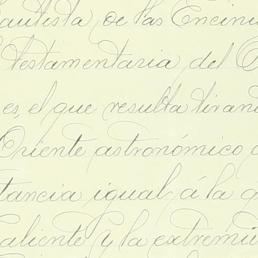 autista de las Encini
testamentaria del
es, el que resulta tirand
Oriente astronómico
tancia igual á la q
aliente y la extremi